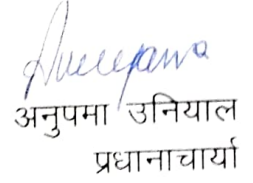 Anupama
अनुपमा उनियाल
प्रधानाचार्या